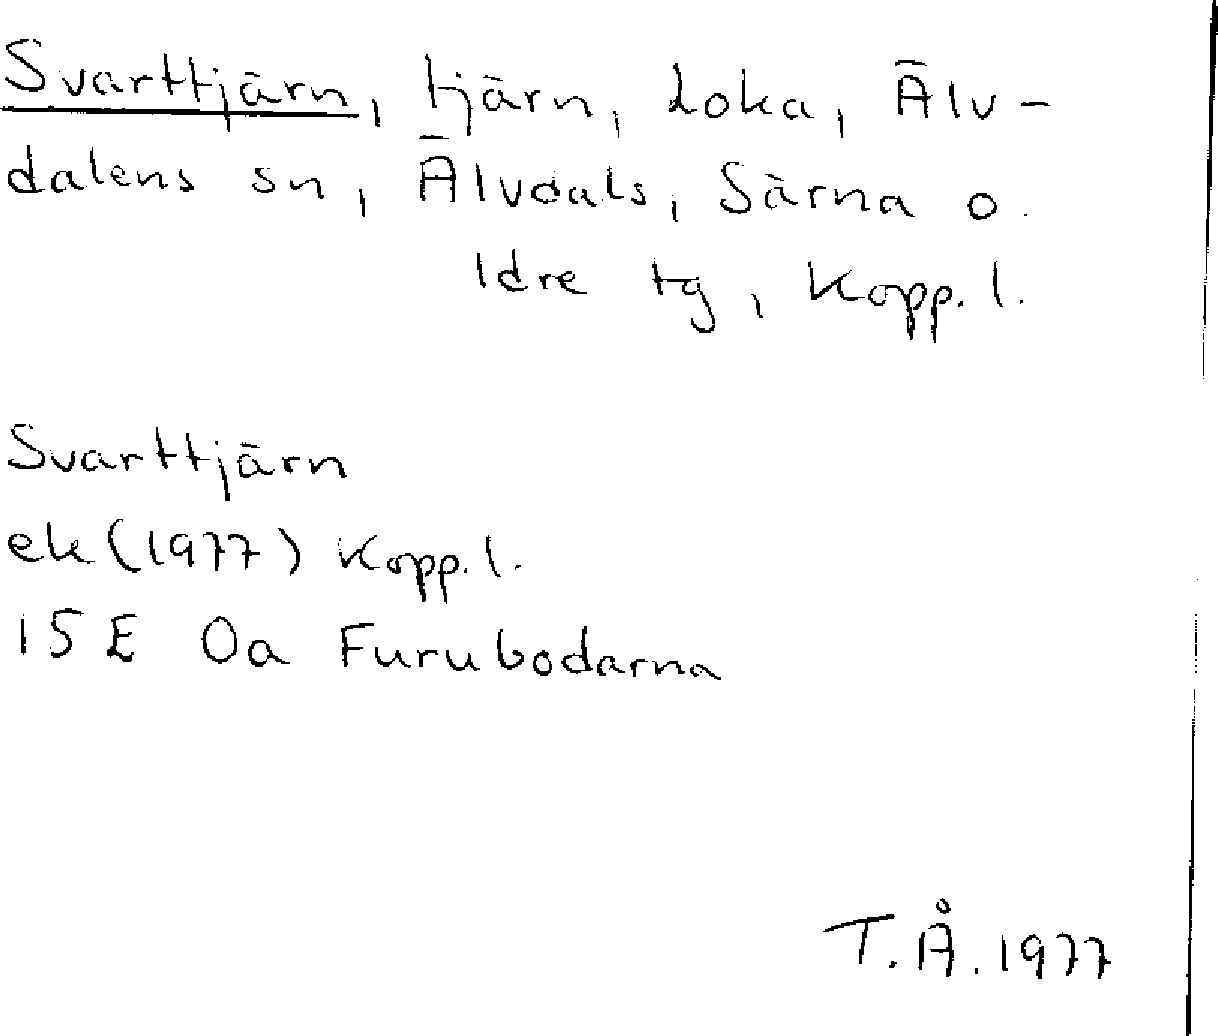 Svarttjärn, tjärn, Loka, Älv-
dalens sn, Älvdals, Särna o.
Idre tg, Kopp. l.
Svarttjärn
ek (1977) Kopp. l.
15 E 0a Furubodarna
T. Å. 1977